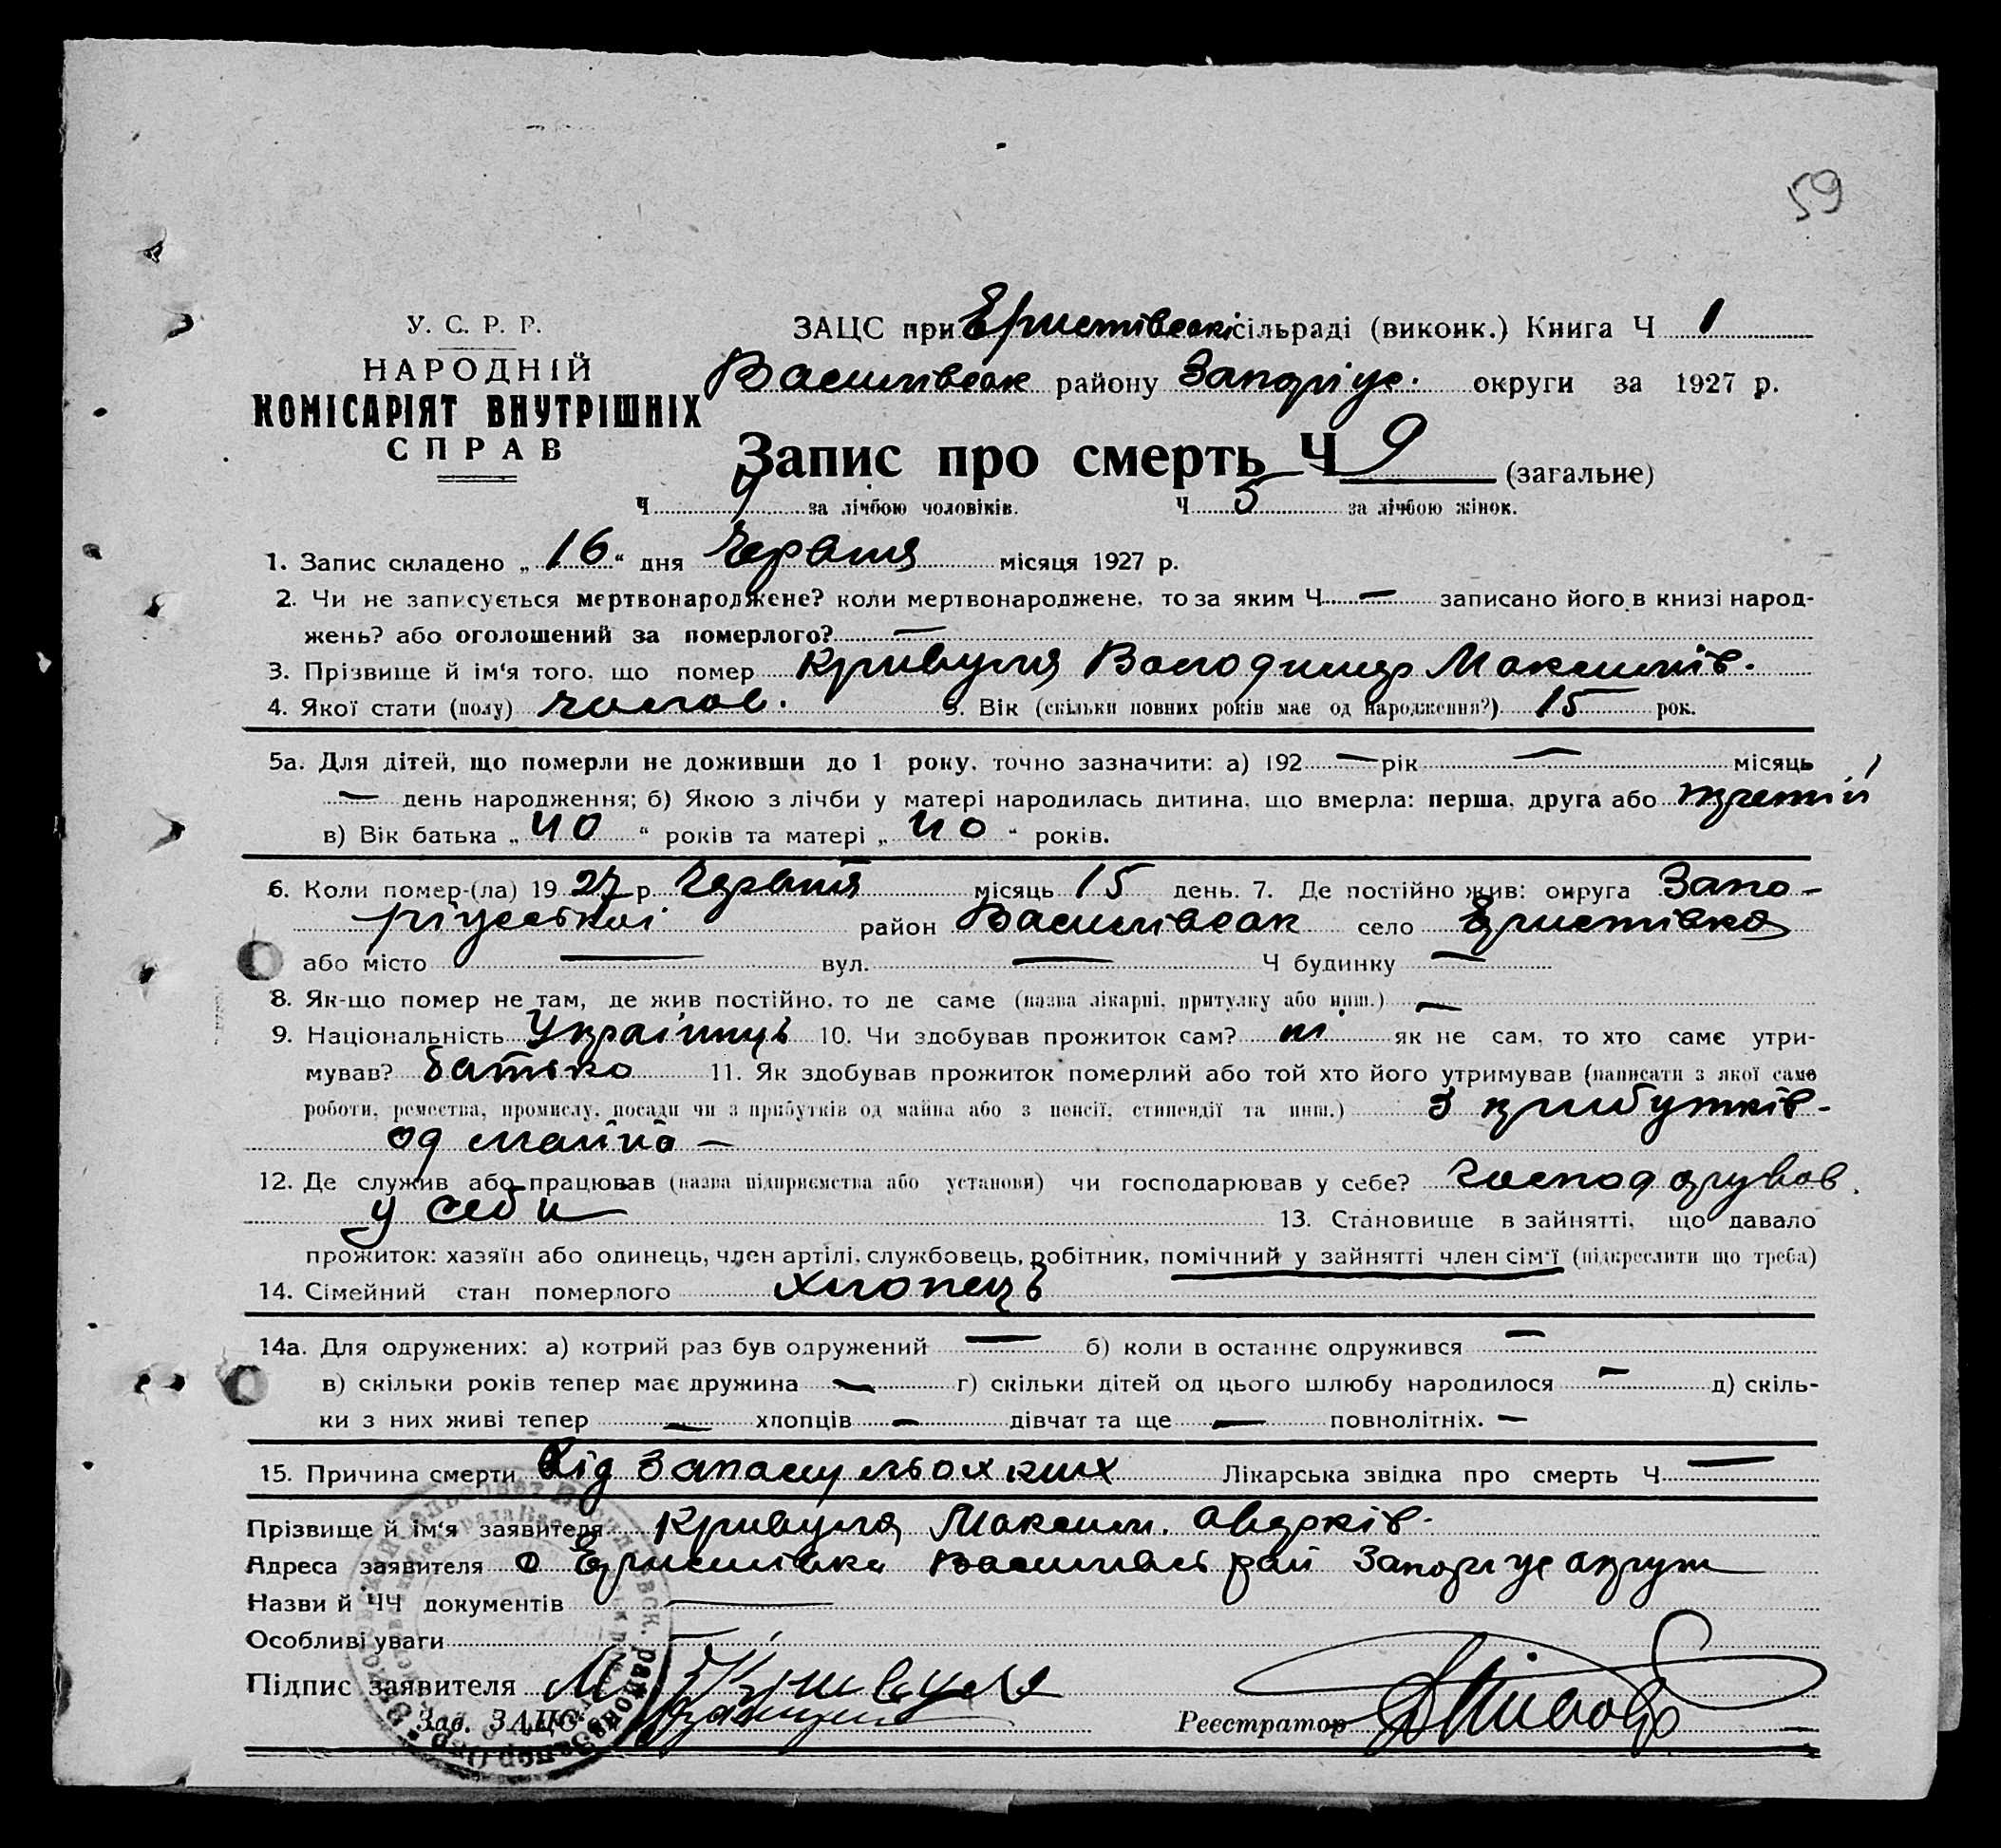 59
У. С. Р. Р.
НАРОДНІЙ
КОМІСАРІЯТ ВНУТРІШНІХ
СПРАВ
ЗАЦС при Еристівській сільраді (виконк.) Книга Ч 1
Василівськ району Запоріж. округи за 1927 р.
Запис про смерть Ч 9 (загальне)
Ч 4 за лічбою чоловіків. Ч 5 за лічбою жінок.
1. Запис складено „ 16 “ дня Червня місяця 1927 р.
2. Чи не записується мертвонароджене? коли мертвонароджене, то за яким Ч — записано його в книзі народ-
жень? або оголошений за померлого? —
3. Прізвище й ім'я того, що помер Кривуля Володимир Максимів.
4. Якої стати (полу) чолов. 5. Вік (скільки повних років має од народження?) 15 рок.
5а. Для дітей, що померли не доживши до 1 року, точно зазначити: а) 192 — рік — місяць
— день народження; б) Якою з лічби у матері народилась дитина, що вмерла: перша, друга або третій
в) Вік батька „ 40 “ років та матері „ 40 “ років.
6. Коли помер-(ла) 19 27 р. Червня місяць 15 день. 7. Де постійно жив: округа Запо-
ріжської район Василівськ село Еристівка
або місто — вул. — Ч будинку —
8. Як-що помер не там, де жив постійно, то де саме (назва лікарні, притулку або инш.) —
9. Національність Українць 10. Чи здобував прожиток сам? ні як не сам, то хто самє утри-
мував? батько 11. Як здобував прожиток померлий або той хто його утримував (написати з якої саме
роботи, ремества, промислу, посади чи з прибутків од майна або з пенсії, стипендії та инш.) З прибутків
од майна —
12. Де служив або працював (назва підприємства або установи) чи господарював у себе? господарував
у себи 13. Становище в зайнятті, що давало
прожиток: хазяїн або одинець, член артілі, службовець, робітник, помічний у зайнятті член сім'ї (підкреслити що треба)
14. Сімейний стан померлого хлопець
14а. Для одружених: а) котрий раз був одружений — б) коли в останнє одружився —
в) скільки років тепер має дружина — г) скільки дітей од цього шлюбу народилося — д) скіль-
ки з них живі тепер — хлопців — дівчат та ще — повнолітніх. —
15. Причина смерти Від Лікарська звідка про смерть Ч —
Прізвище й ім'я заявителя Кривуля Максим.
Адреса заявителя с Еристівка Василівськ рай Запоріж округ
Назви й ЧЧ документів —
Особливі уваги
Підпис заявителя М Кривуля
Зав. ЗАЦС Реєстратор